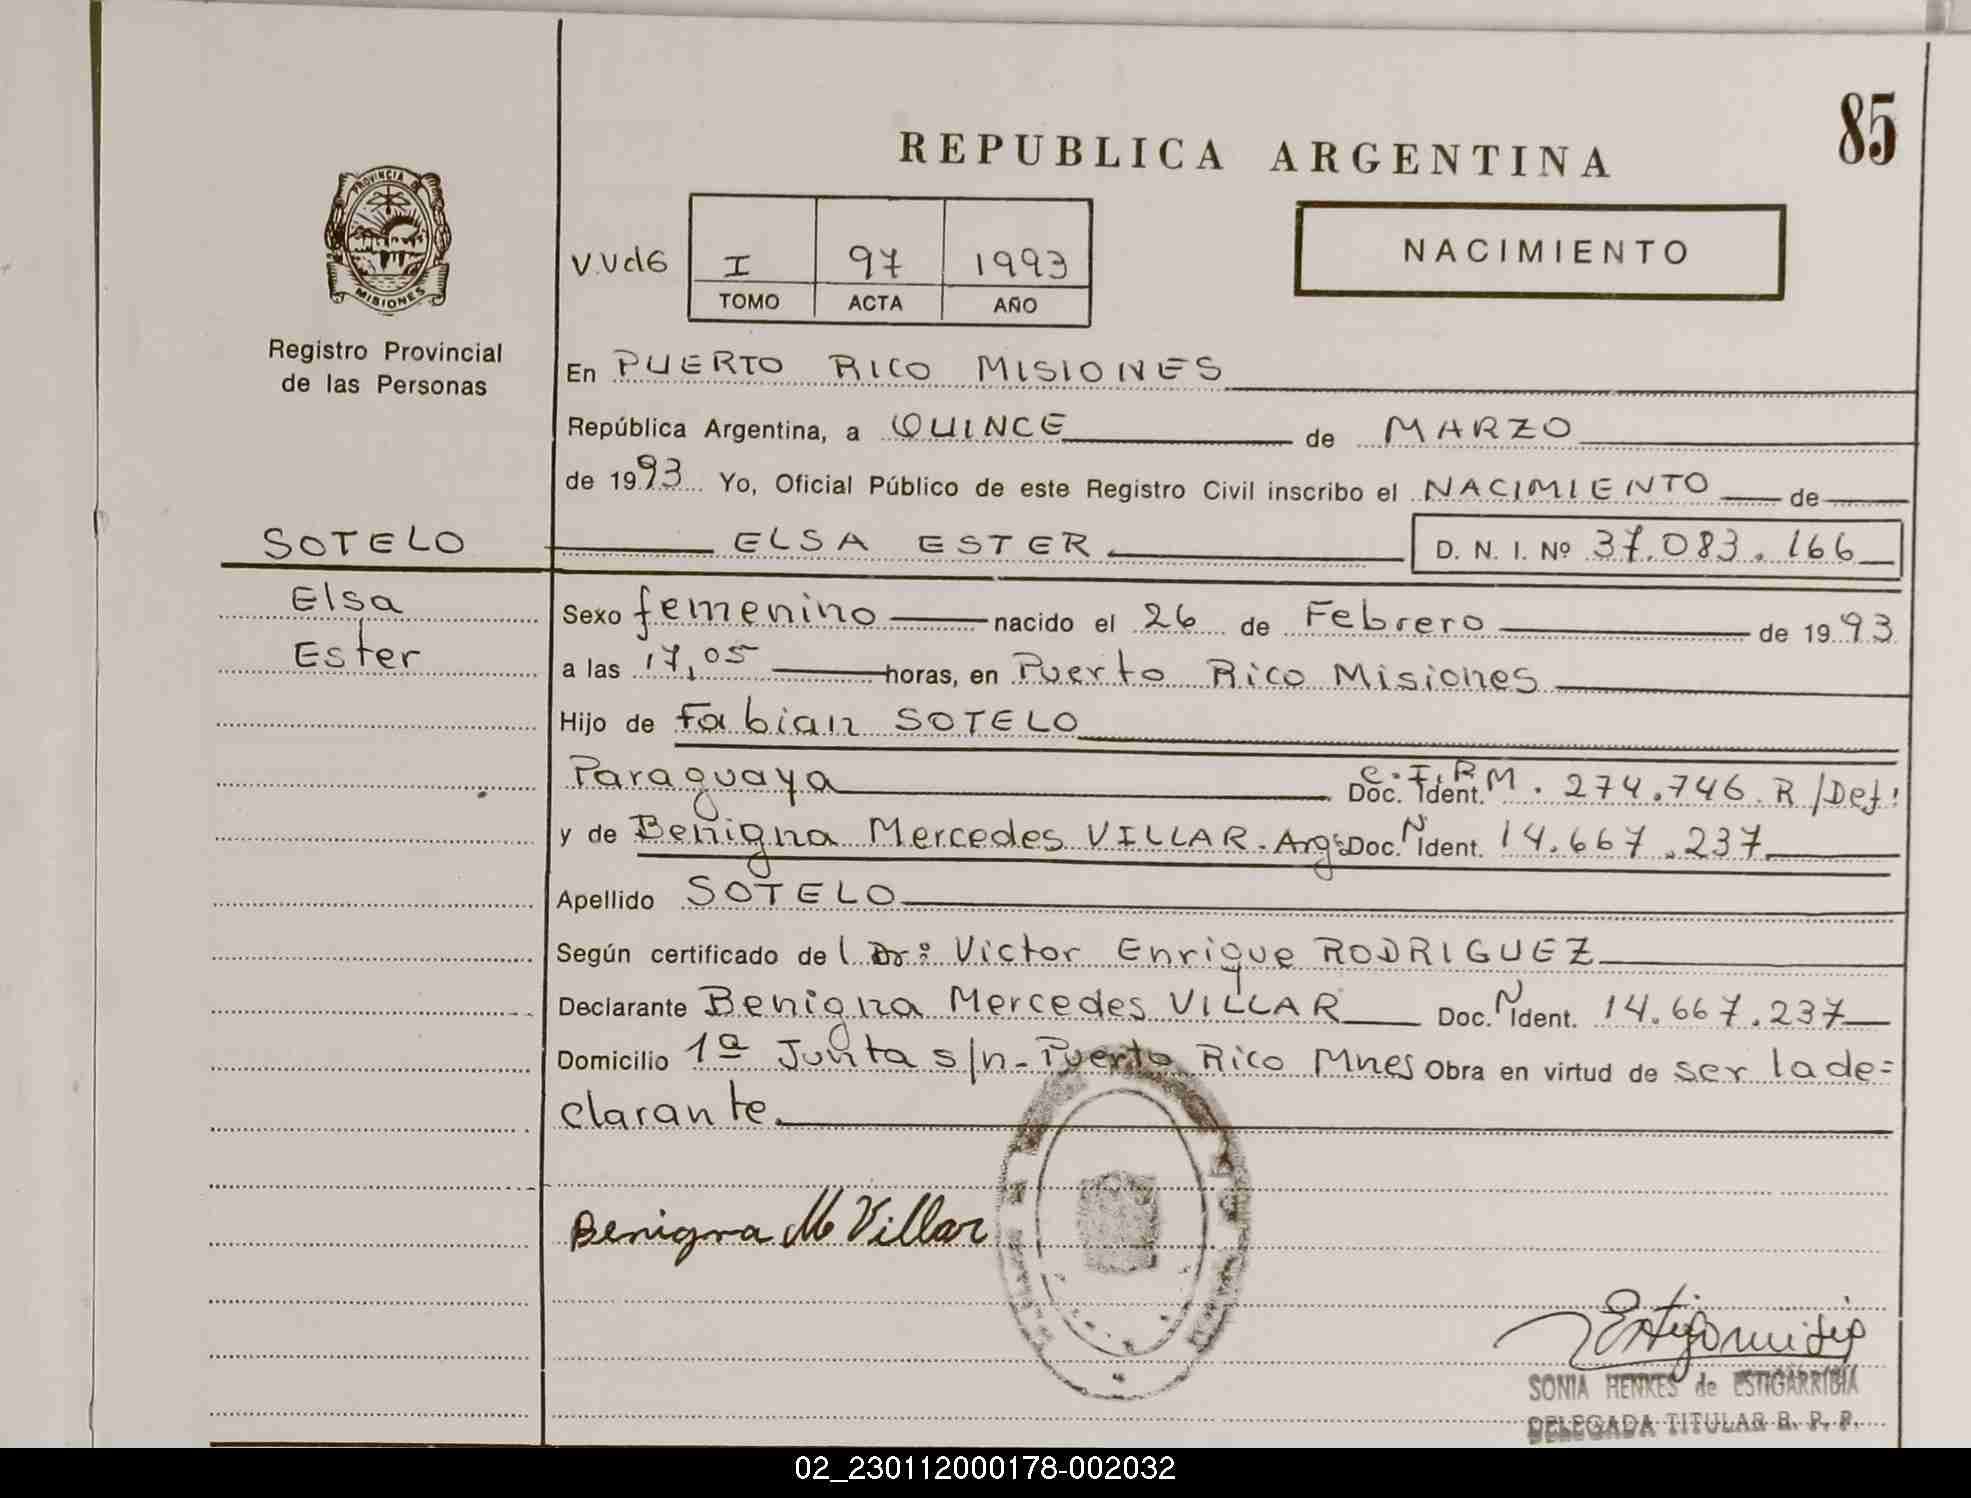 85
REPUBLICA ARGENTINA
PROVINCIA DE
MISIONES
Registro Provincial
de las Personas
V.Vd6 I 97 1993
TOMO ACTA AÑO
NACIMIENTO
En PUERTO RICO MISIONES
República Argentina, a QUINCE de MARZO
de 1993 Yo, Oficial Público de este Registro Civil inscribo el NACIMIENTO de
SOTELO ELSA ESTER D. N. I. Nº 37.083.166
Elsa
Ester
Sexo femenino nacido el 26 de Febrero de 1993
a las 17,05 horas, en Puerto Rico Misiones
Hijo de Fabian SOTELO
Paraguaya Doc. Ident. C.I.R M. 274.746 R/Def.
y de Benigna Mercedes VILLAR. Arg. Doc. N Ident. 14.667.237
Apellido SOTELO
Según certificado del Dr: Victor Enrique RODRIGUEZ
Declarante Benigna Mercedes VILLAR Doc. N Ident. 14.667.237
Domicilio 1ª Junta s/n- Puerto Rico Mnes Obra en virtud de ser la de=
clarante.
Benigna M Villar
SONIA HENKES de ESTIGARRIBIA
DELEGADA TITULAR R. P. P.
02_230112000178-002032